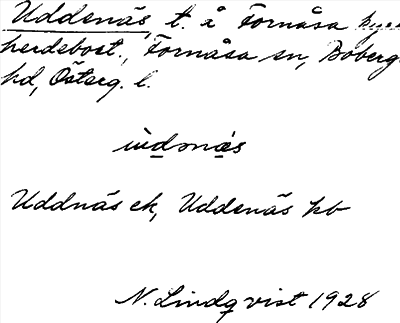 Uddenäs, t. å Fornåsa kyrk
herdebost., Fornåsa sn, Boberg
hd, Österg. l.
ùdənäs
Uddnäs ek, Uddenäs kb
N. Lindqvist 1928